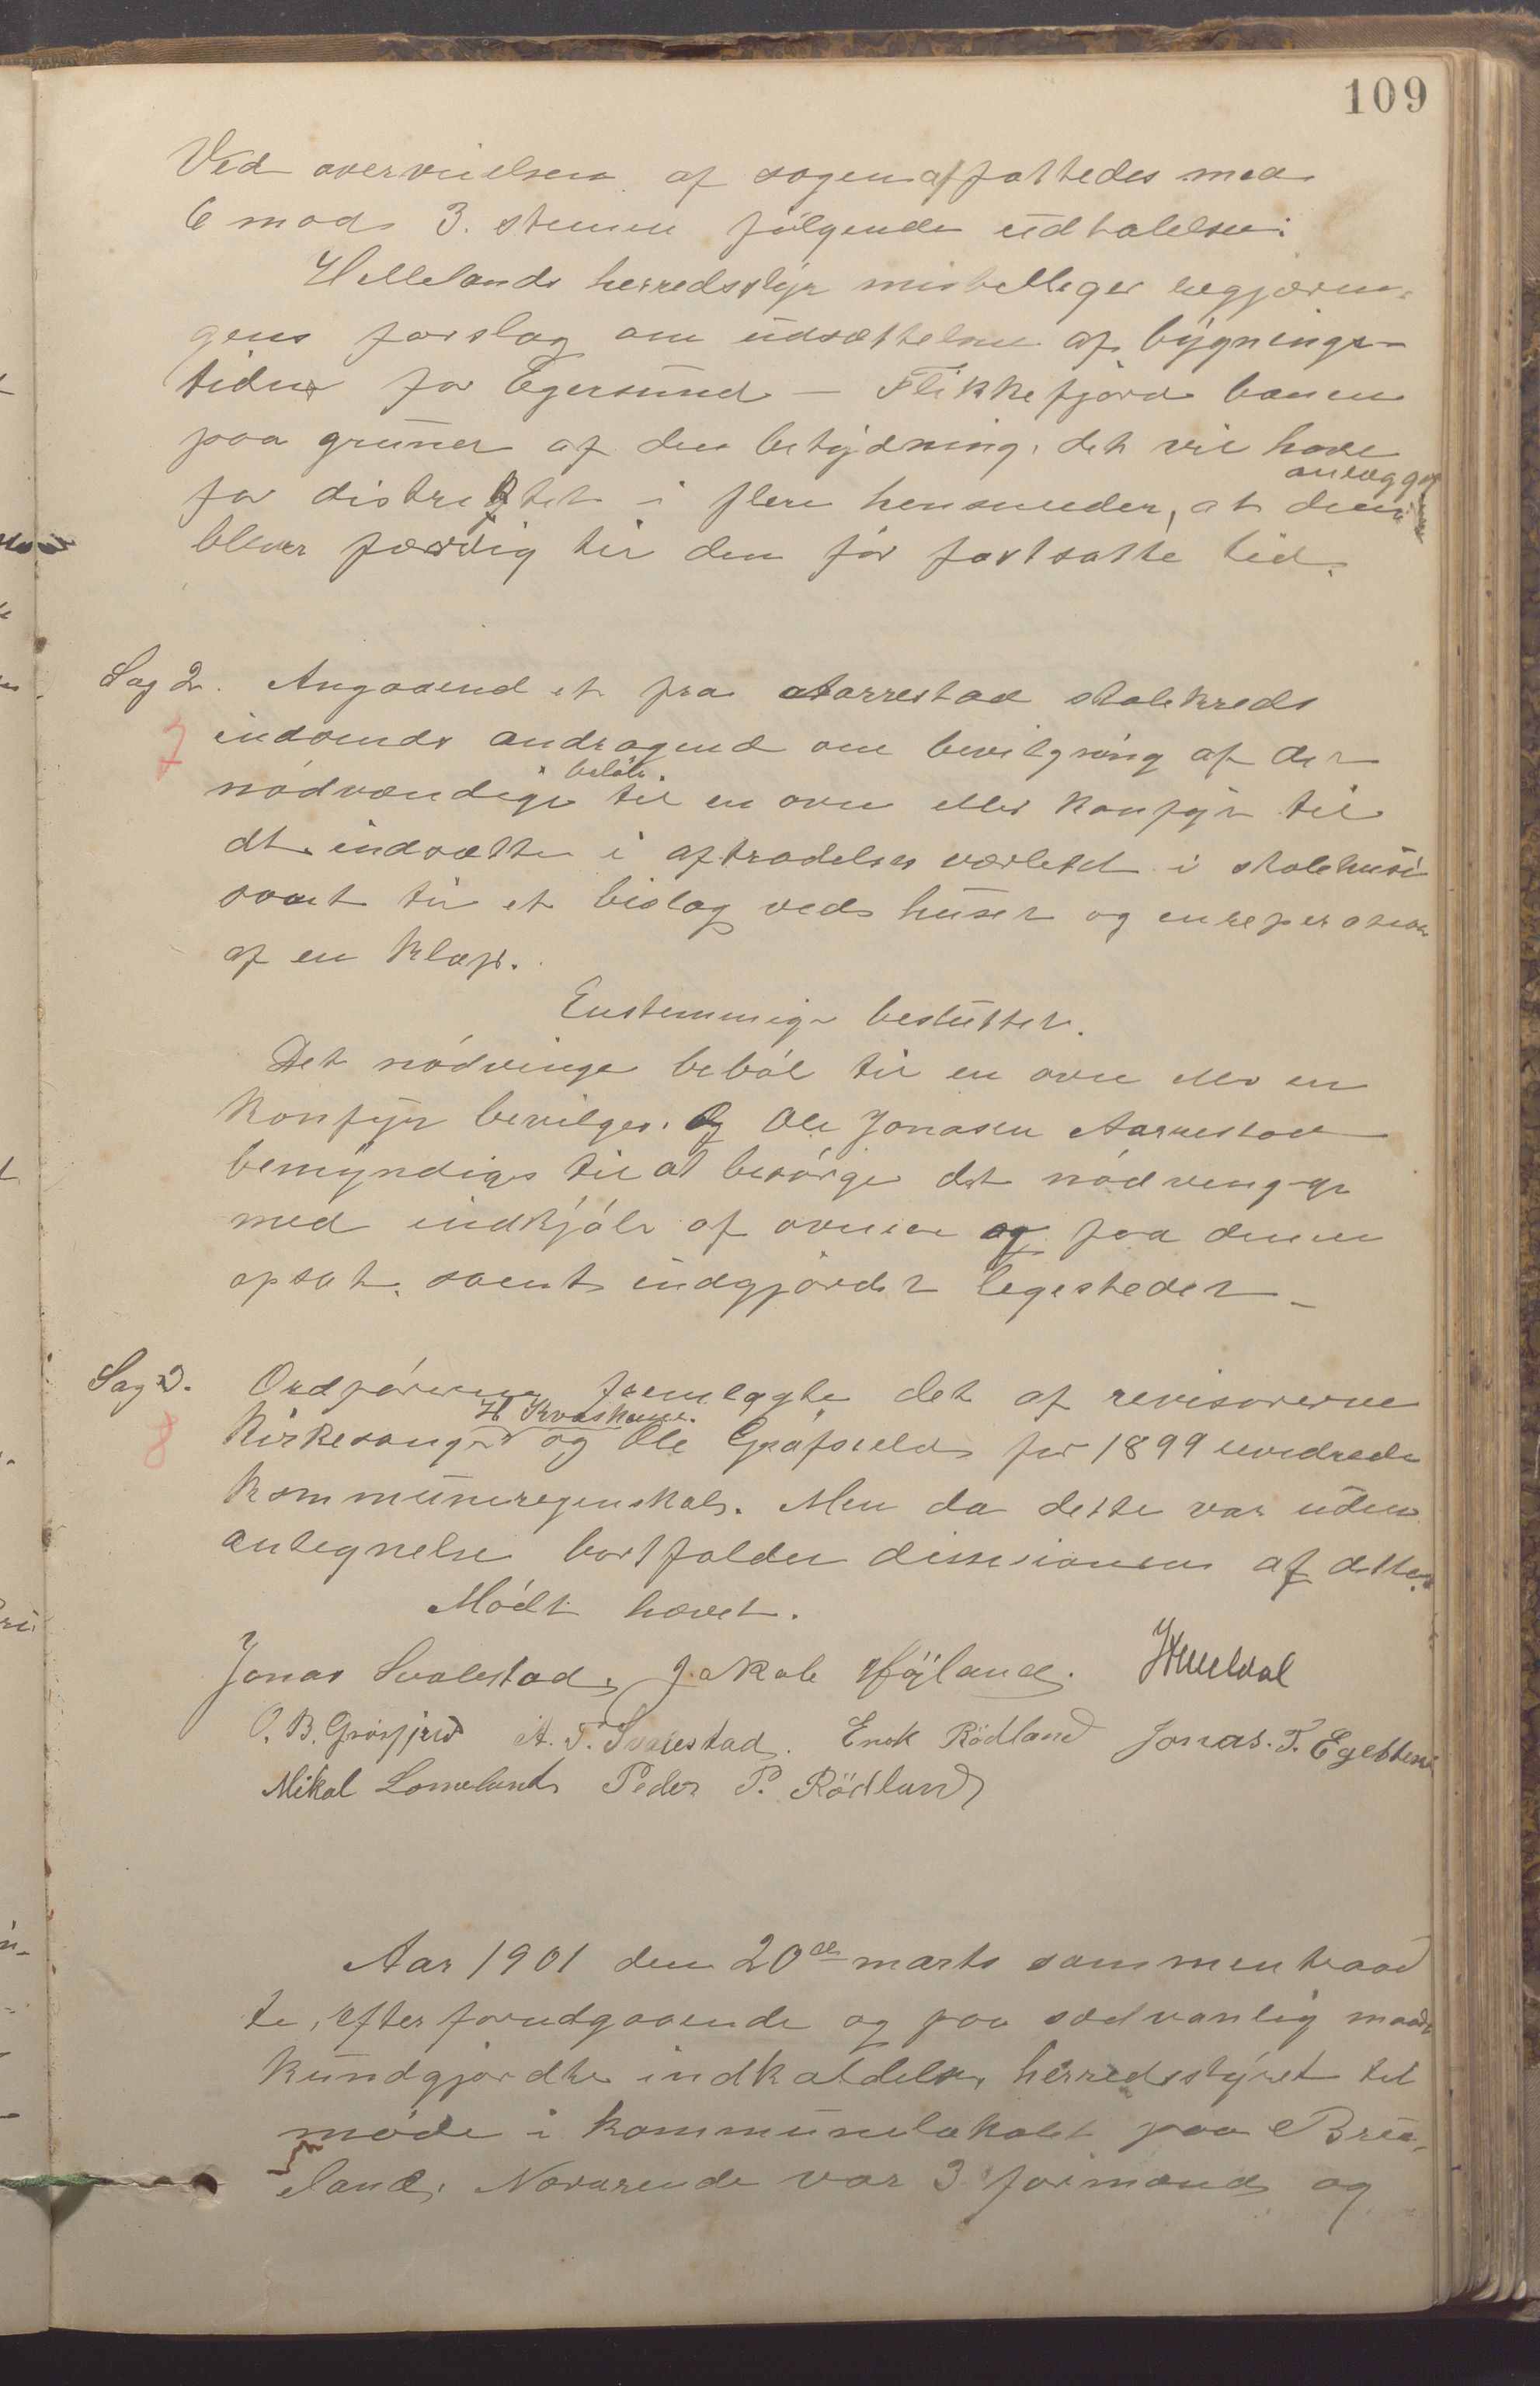 109
Ved overveielsen af sagen affattedes med
6 mod 3. stemmer følgende udtalelse:
Hellelands herredsstyr misbilliger regjærin-
gens forslag om udsættelsen af bygnings-
tiden for Egersund – Flikkefjord banen
paa grunn af den betydning, det vil have
anlægget
for distriktet i flere henseender, at denne
bliver færdig til den før fastsatte tid.
Sag 2. Angaaend et fra Aarrestad skolekreds
7 indsends andragend om bevilgning af det
beløb
nødvændige til en ovn eller konfyr til
at indsætte i aftrædelses værelsd i skolehusi
samt til et bislag veds huset og en reperation
af en klaps.
Enstemmige besluttet.
Det nødvinge beløb til en ovn eller en
konfyr bevilges. Og Ole Jonasen Aarrestad
bemyndiges til at besørge det nødvengge
med indkjøb af ovnen og faa denne
opsat. samt indgjørdet legestedet –
Sag 3. Ordføreren fremlagte det af revisorerne
H Kvashaue.
8 Kirkesanger og Ole Grøfsield for 1899 revidrede
kommuneregenskab. Men da dette var uden
antegnelse bortfalder dissisionen af dette.
Mødt hævet.
Jonas Svalestad, Jakob Høyland.
O. B. Grøsfjeld A. T. Svalestad. Enok Rødland Jonas. T. Egebakken
Mikal Lomeland Peder P. Rødland
Aar 1901 den 20de marts sammentraad
te, efter forudgaaende og paa sædvanlig maade
kundgjordte indkaldelse, herredsstyret til
møde i kommunelokalet paa Brue-
land, Nærværende var 3 formænd og